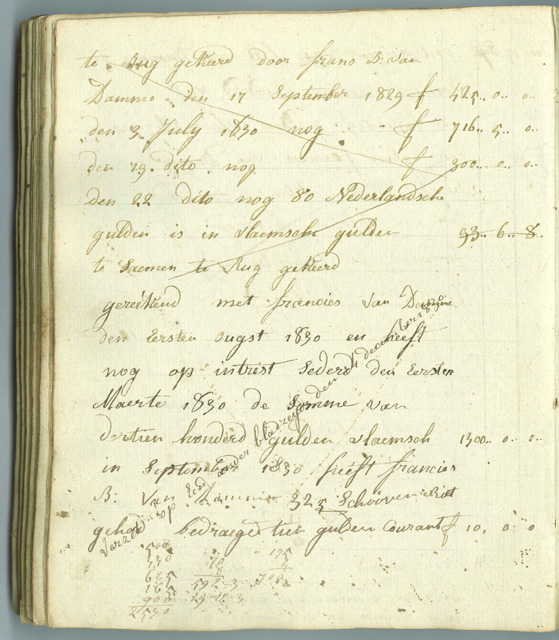 te Rug gekeerd door frans B: van
Damme den 17 September 1829 f 425.. 0.. 0..
den 3 July 1830 nog f 716.. 5.. 0..
den 19 dito nog f 300.. 0.. 0..
den 22 dito nog 80 Nederlandsche
gulden is in vlaemsch gulden 93.. 6.. 8..
te Saemen te Rug gekeerd
gereekend met francies van Damme
den Eersten ougst 1830 en heeft
nog op intrist Sederd den Eersten
Maerte 1830 de Somme van
dertien honderd gulden vlaemsch 1300.. 0.. 0..
in September 1830 heeft francies
B: van Damme 325 Schooven Riet
gehad bedraeged tien gulden Courant f 10.. 0.. 0
op Een ander bladzeyde den december 1830